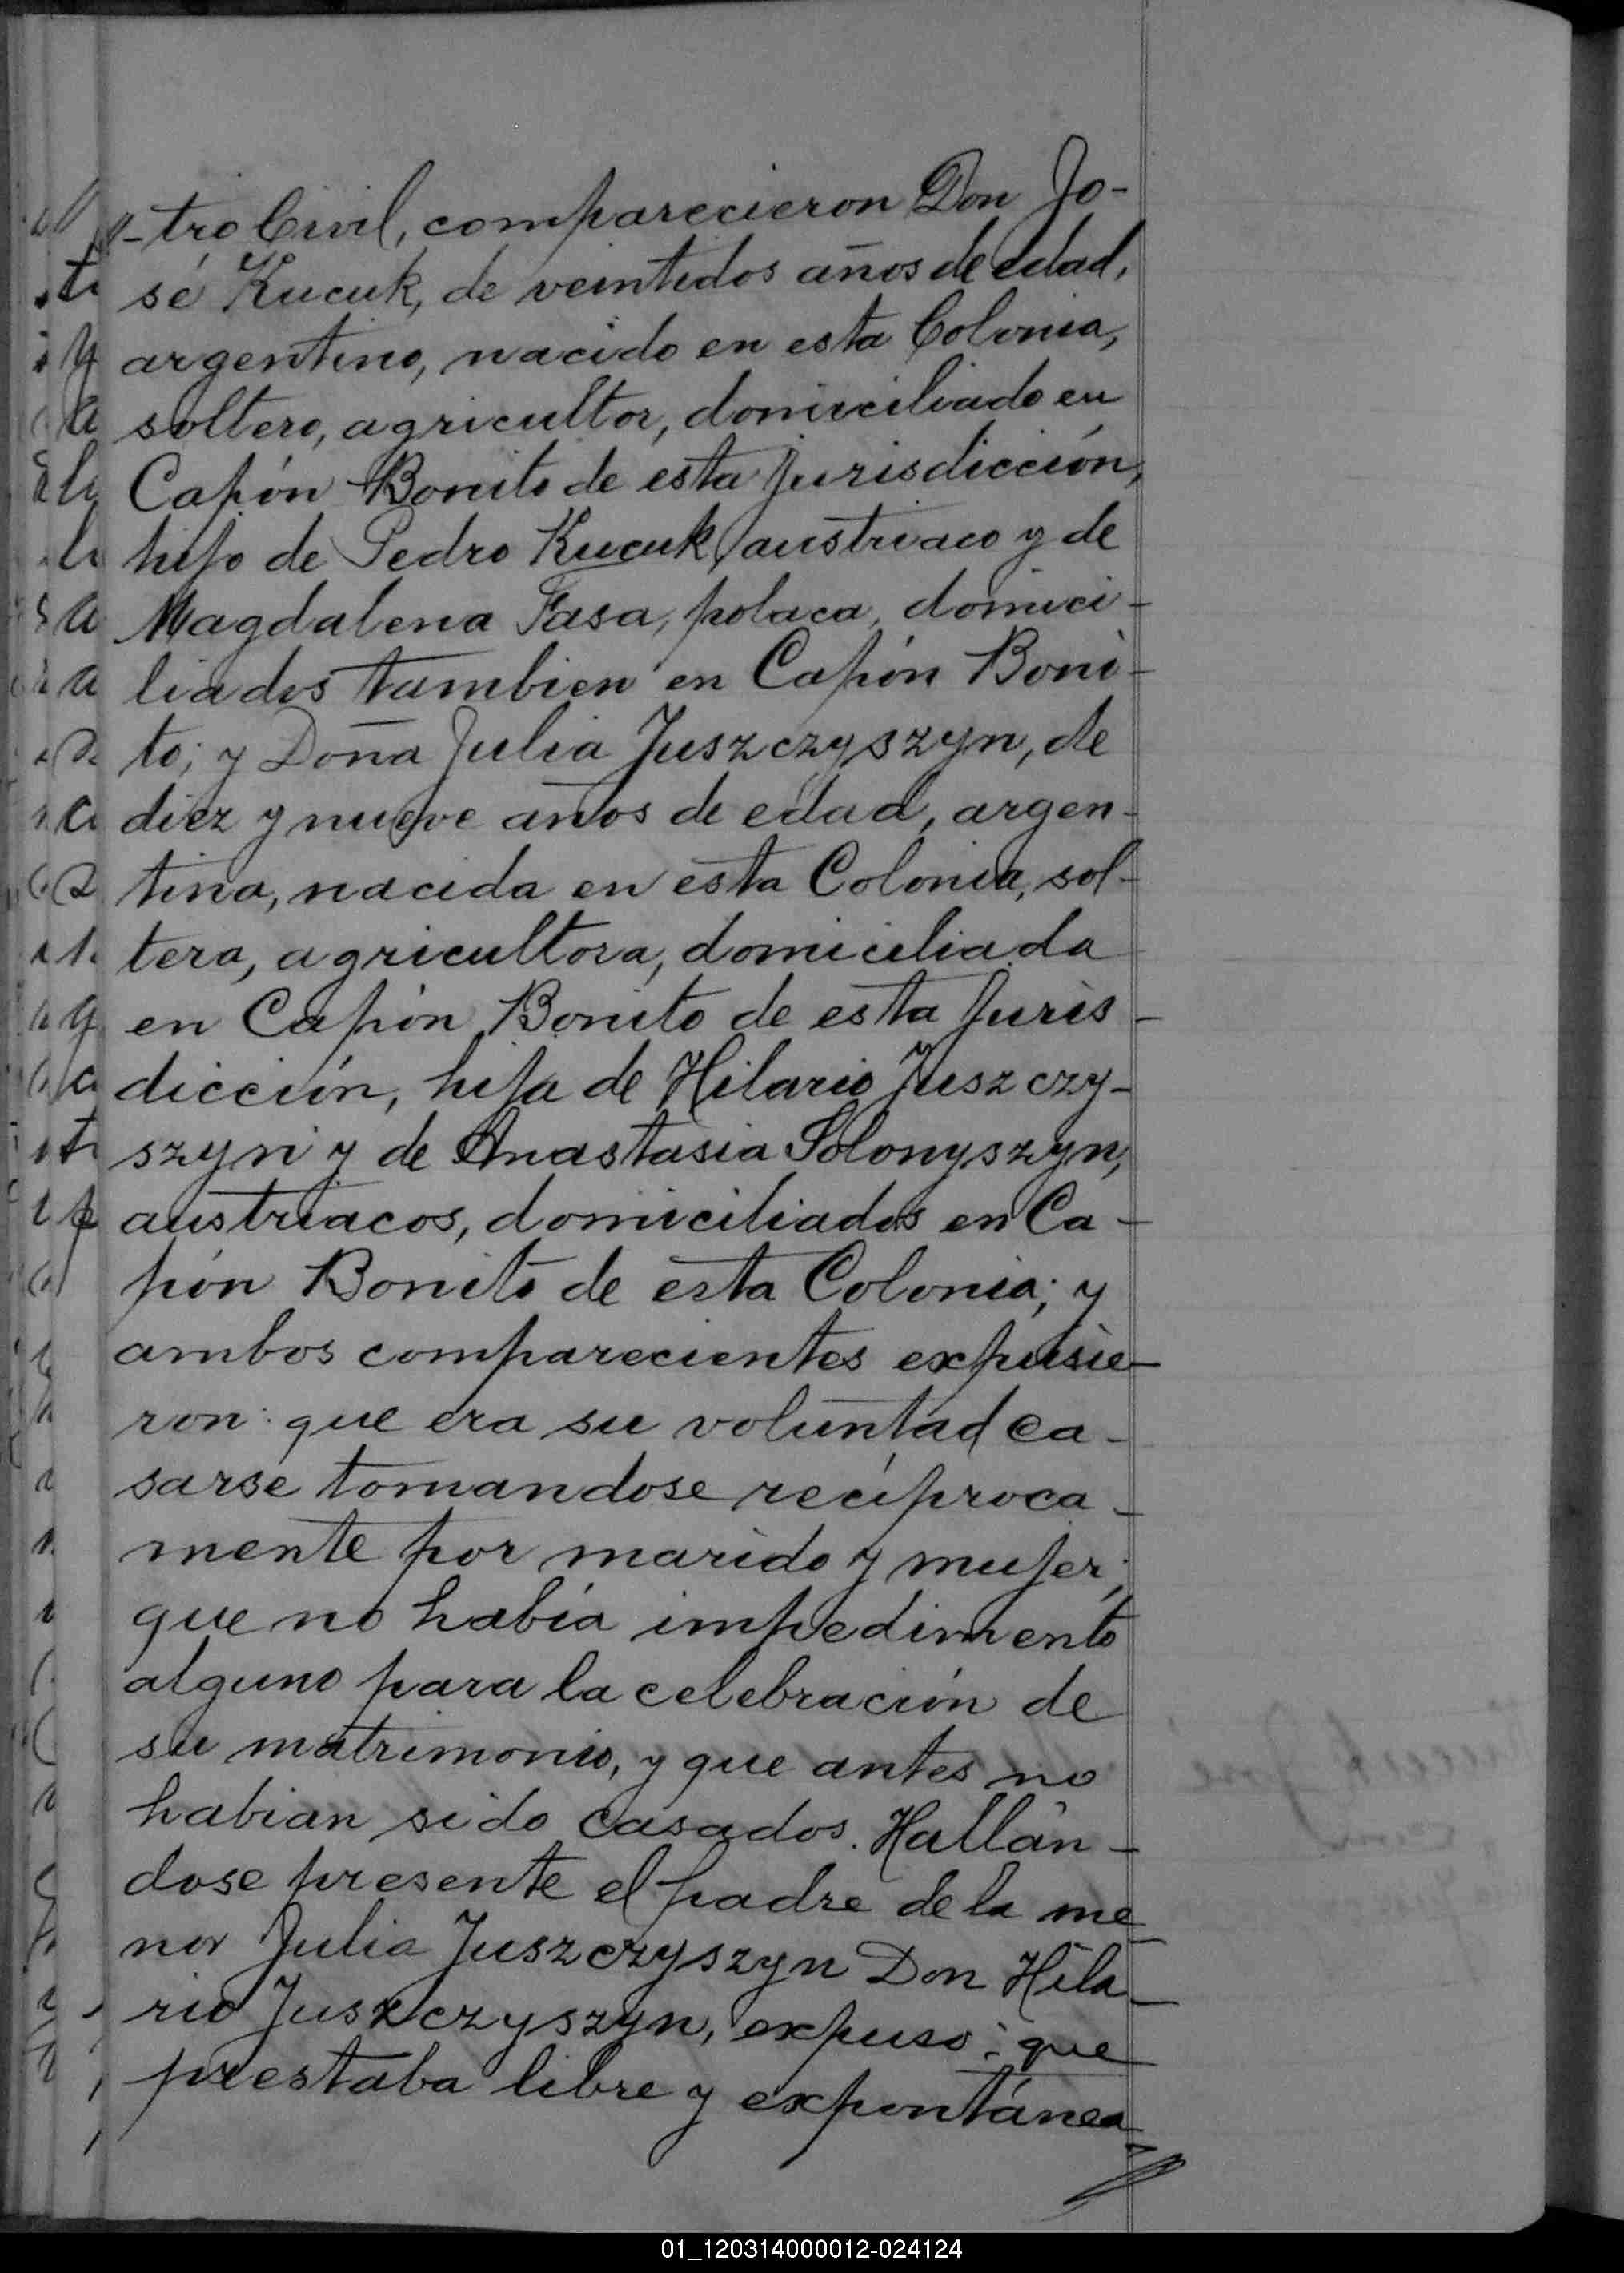 -tro Civil, comparecieron Don Jo-
sé Kucuk, de veintidos años de edad,
argentino, nacido en esta Colonia,
soltero, agricultor, domiciliado en
Capón Bonito de esta Jurisdicción,
hijo de Pedro Kucuk, austriaco y de
Magdalena Fasa, polaca, domici-
liados tambien en Capón Boni-
to; y Doña Julia Juszczyszyn, de
diez y nueve años de edad, argen-
tina, nacida en esta Colonia, sol-
tera, agricultora, domiciliada
en Capón Bonito de esta Juris-
dicción, hija de Hilario Juszczy-
szyn y de Anastasia Solonyszyn,
austriacos, domiciliados en Ca-
pón Bonito de esta Colonia; y
ambos comparecientes expusie-
ron: que era su voluntad ca-
sarse tomandose recíproca-
mente por marido y mujer;
que no había impedimento
alguno para la celebración de
su matrimonio, y que antes no
habian sido casados. Hallán-
dose presente el padre de la me-
nor Julia Juszczyszyn Don Hila-
rio Juszczyszyn, expuso: que
prestaba libre y expontánea
01_120314000012-024124